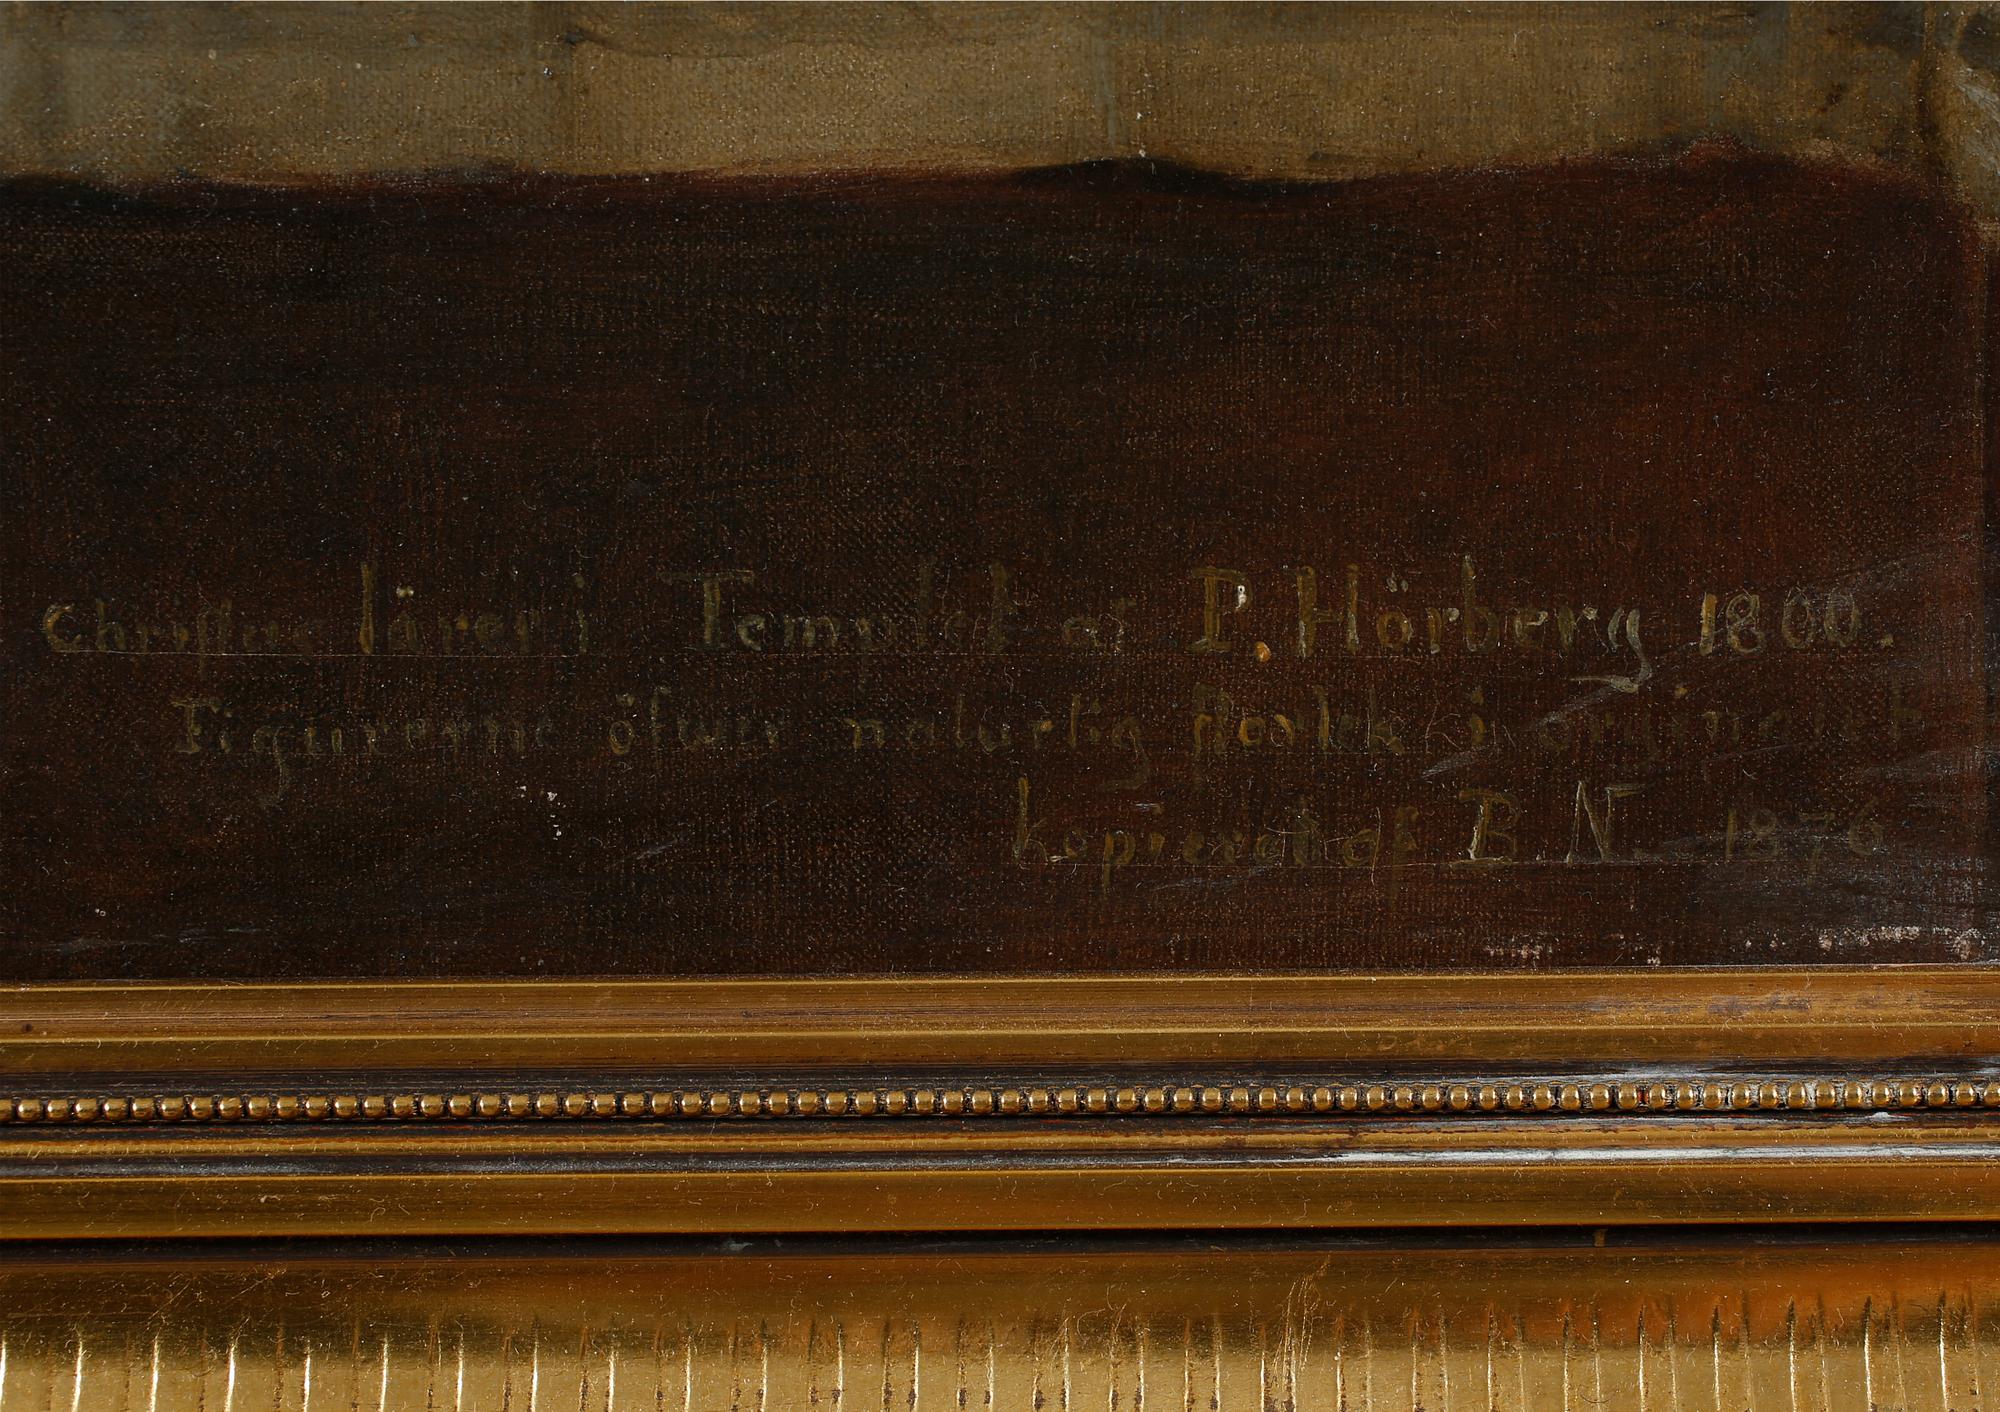 Christus lärer i Templet af P. Hörberg 1800.
Figurerne öfwer naturlig storlek i originalet
kopierad af B. N. 1876